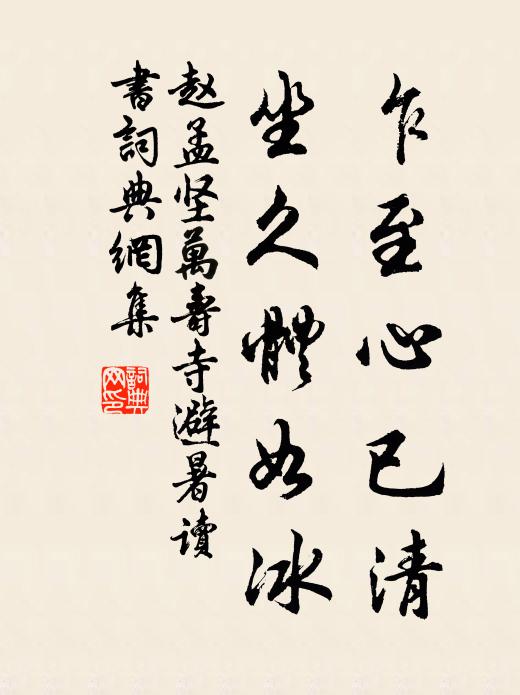 乍至心已清
坐久體如冰
赵孟坚萬壽寺避暑讀
書詞典網集
詞典
网印